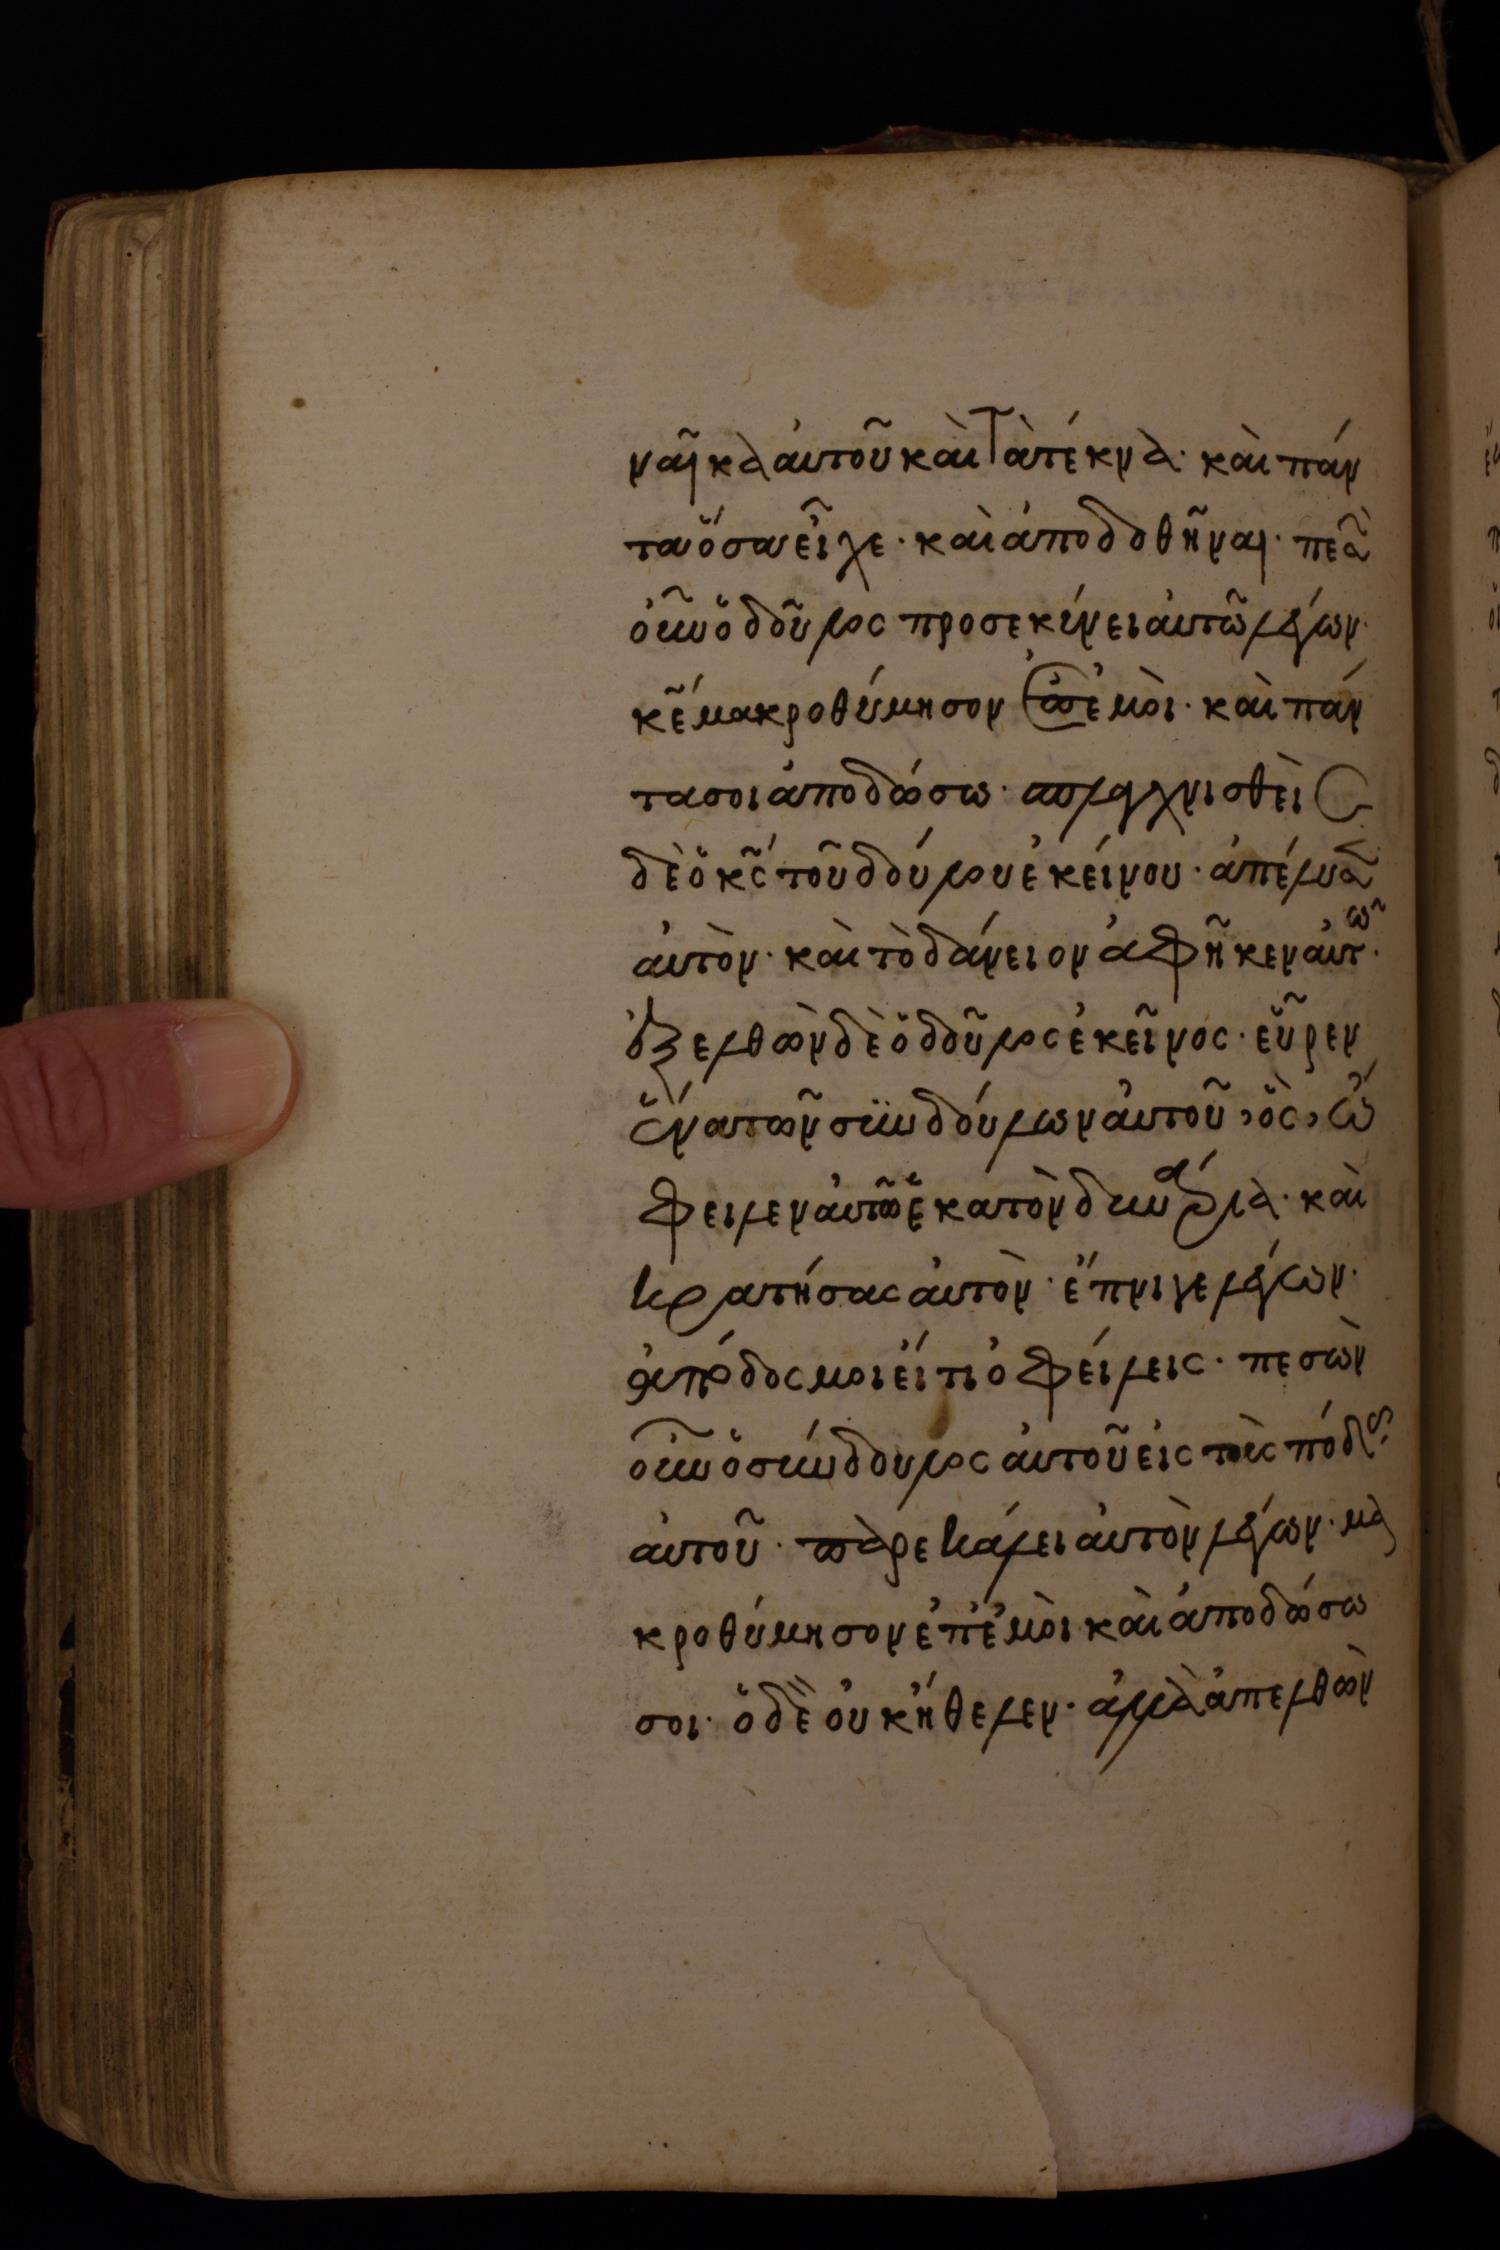 ναῖκα αὐτοῦ καὶ τὰ τέκνα· καὶ πάν
τα ὅσα εἶχε· καὶ ἀποδοθῆναι· πεσὼν
οὖν ὁ δοῦλος προσεκύνει αὐτῶ λέγων·
κε μακροθύμησον ἐπ' ἐμοὶ· καὶ πάν
τα σοι ἀποδώσω· σπλαγχνισθεὶς
δὲ ὁ κς τοῦ δούλου ἐκείνου· ἀπέλυσεν
αὐτὸν· καὶ τὸ δάνειον ἀφῆκεν αὐτῶ·
ἐξελθὼν δὲ ὁ δοῦλος ἐκεῖνος· εὗρεν
ἕνα τῶν συνδούλων αὐτοῦ, ὃς, ὤ
φειλεν αὐτῶ ἑκατὸν δηνάρια· καὶ
κρατήσας αὐτὸν· ἔπνιγε λέγων·
ἀπόδος μοι εἴ τι ὀφείλεις· πεσὼν
οὖν ὁ σύνδουλος αὐτοῦ εἰς τοὺς πόδας
αὐτοῦ· παρεκάλει αὐτὸν λέγων· μα
κροθύμησον ἐπ' ἐμοὶ καὶ ἀποδώσω
σοι· ὁ δὲ οὐκ ἤθελεν· ἀλλὰ ἀπελθὼν